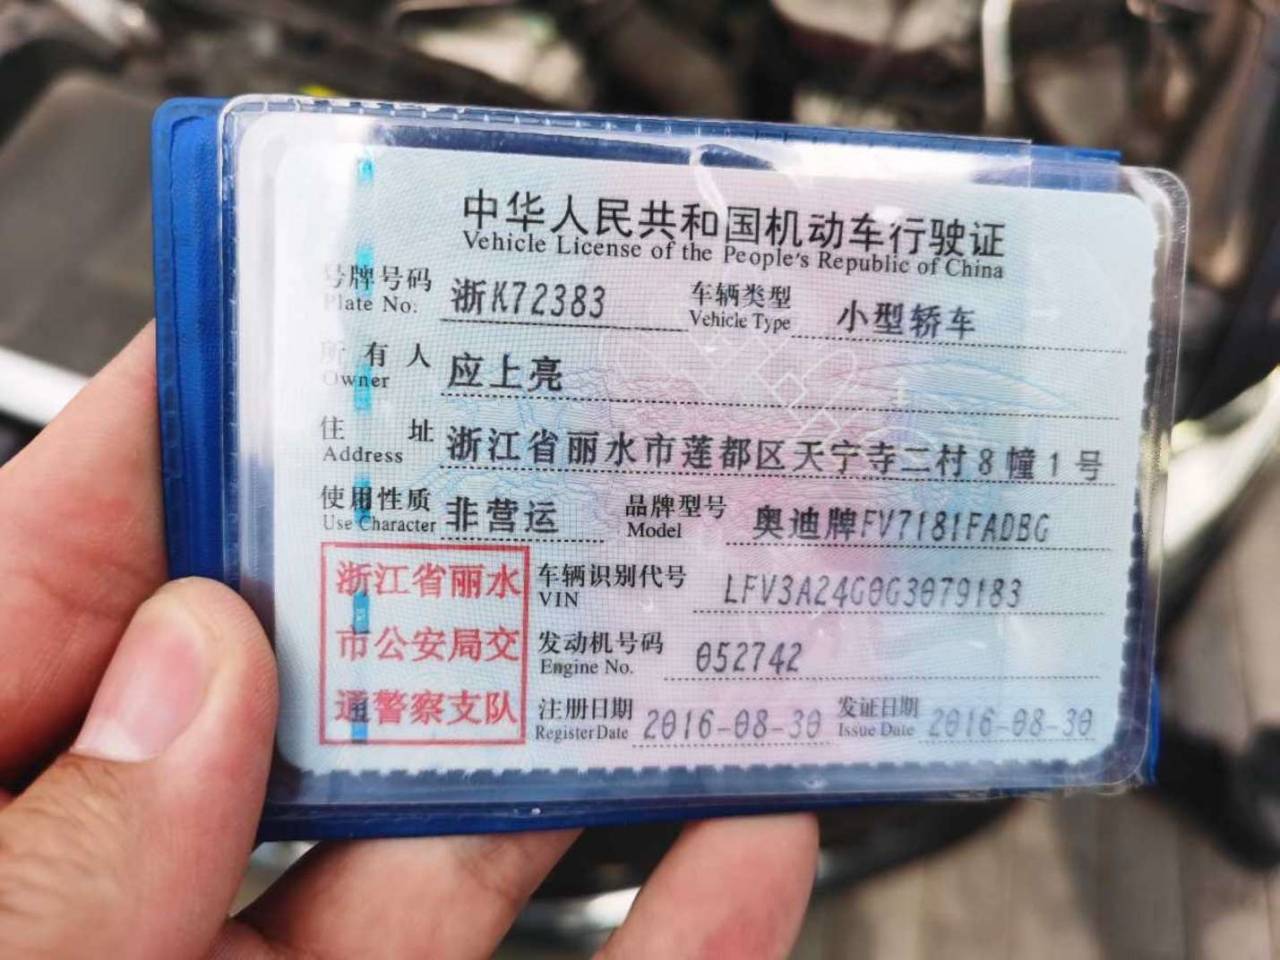 中华人民共和国机动车行驶证
Vehicle License of the People's Republic of China
号牌号码 浙K72383 车辆类型 小型轿车
Plate No. Vehicle Type
所有人 应上亮
Owner
住址 浙江省丽水市莲都区天宁寺二村8幢1号
Address
使用性质 非营运 品牌型号 奥迪牌FV7181FADBG
Use Character Model
浙江省丽水
市公安局交
通警察支队
车辆识别代号 LFV3A24G0G3079183
VIN
发动机号码 052742
Engine No.
注册日期 2016-08-30 发证日期 2016-08-30
Register Date Issue Date